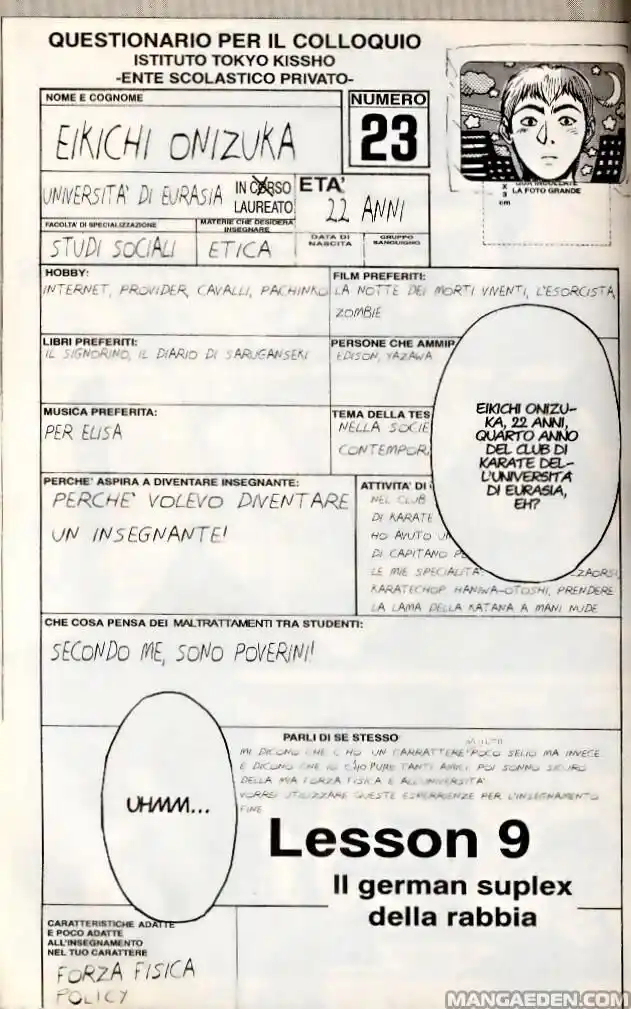 QUESTIONARIO PER IL COLLOQUIO
ISTITUTO TOKYO KISSHO
-ENTE SCOLASTICO PRIVATO-
NOME E COGNOME
EIKICHI ONIZUKA
NUMERO
23
LA FOTO GRANDE
cm
UNIVERSITA' DI EURASIA
IN CORSO
LAUREATO
ETA'
22 ANNI
FACOLTA' DI SPECIALIZZAZIONE
STUDI SOCIALI
MATERIE CHE DESIDERA
INSEGNARE
ETICA
DATA DI
NASCITA
GRUPPO
SANGUIGNO
HOBBY:
INTERNET, PROVIDER, CAVALLI, PACHINKO
FILM PREFERITI:
LA NOTTE DEI MORTI VIVENTI, L'ESORCISTA,
ZOMBIE
LIBRI PREFERITI:
IL SIGNORINO, IL DIARIO DI SARUGANSEKI
PERSONE CHE AMMIR
EDISON, YAZAWA
MUSICA PREFERITA:
PER ELISA
TEMA DELLA TES
NELLA SOCIE
CONTEMPOR
EIKICHI ONIZU-
KA, 22 ANNI,
QUARTO ANNO
DEL CLUB DI
KARATE DEL-
L'UNIVERSITÀ
DI EURASIA,
EH?
PERCHE' ASPIRA A DIVENTARE INSEGNANTE:
PERCHE' VOLEVO DIVENTARE
UN INSEGNANTE!
ATTIVITA' DI
NEL CLUB
DI KARATE
HO AVUTO
DI CAPITANO
LE MIE SPECIALITA'
KARATECHOP HANIWA-OTOSHI, PRENDERE
LA LAMA DELLA KATANA A MANI NUDE
CHE COSA PENSA DEI MALTRATTAMENTI TRA STUDENTI:
SECONDO ME, SONO POVERINI!
PARLI DI SE STESSO
MI DICONO CHE HO UN CARRATTERE POCO SELIO MA INVECE
E DICONO CHE IO HO PURE TANTI AMICI POI SONNO SICURO
DELLA MIA FORZA FISICA E ALL'UNIVERSITA'
VORREI UTILIZZARE QUESTE ESPERRIENZE PER L'INSEGNAMENTO
FINE
UHMM...
Lesson 9
Il german suplex
della rabbia
CARATTERISTICHE ADATTE
E POCO ADATTE
ALL'INSEGNAMENTO
NEL TUO CARATTERE
FORZA FISICA
POLICY
MANGAEDEN.COM